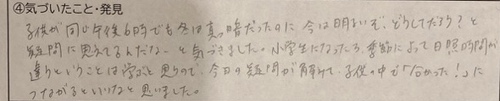 ④気づいたこと・発見
子供が同じ午後6時でも冬は真っ暗だったのに今は明るいぞ、どうしてだろう？と
疑問に思えてるんだなーと気づきました。小学生になったら季節によって日照時間が
違うということは学ぶと思うので、今日の疑問が解けて、子供の中で「分かった！」に
つながるといいなと思いました。